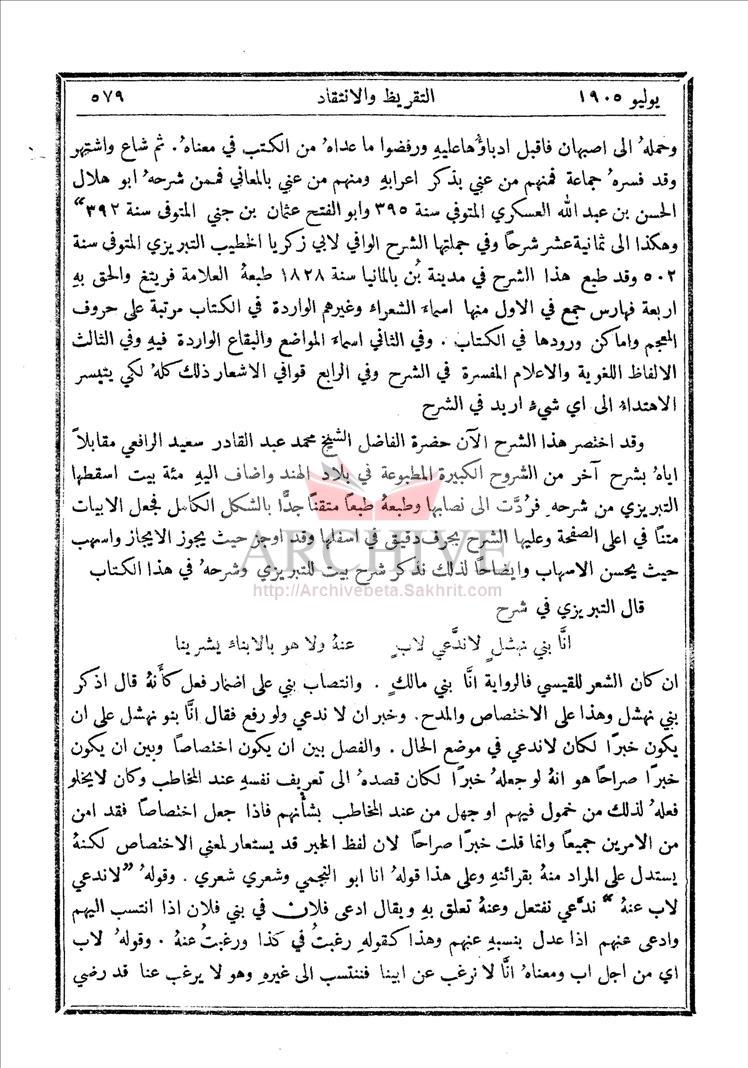 يوليو ١٩٠٥ التقريظ والانتقاد ٥٧٩
وحملهُ الى اصبهان فاقبل ادباؤُها عليهِ ورفضوا ما عداهُ من الكتب في معناهُ. ثم شاع واشتهر
وقد فسرهُ جماعة فمنهم من عني بذكر اعرابهِ ومنهم من عني بالمعاني فممن شرحهُ ابو هلال
الحسن بن عبد الله العسكري المتوفي سنة ٣٩٥ وابو الفتح عثمان بن جني المتوفى سنة ٣٩٢"
وهكذا الى ثمانية عشر شرحاً وفي جملتها الشرح الوافي لابي زكريا الخطيب التبريزي المتوفى سنة
٥٠٢ وقد طبع هذا الشرح في مدينة بُن بالمانيا سنة ١٨٢٨ طبعهُ العلامة فريتغ والحق بهِ
اربعة فهارس جمع في الاول منها اسماء الشعراء وغيرهم الواردة في الكتاب مرتبة على حروف
المعجم واماكن ورودها في الكتاب . وفي الثاني اسماء المواضع والبقاع الواردة فيهِ وفي الثالث
الالفاظ اللغوية والاعلام المفسرة في الشرح وفي الرابع قوافي الاشعار ذلك كلهُ لكي يتيسر
الاهتداءُ الى اي شيءٍ اريد في الشرح
وقد اختصر هذا الشرح الآن حضرة الفاضل الشيخ محمد عبد القادر سعيد الرافعي مقابلاً
اياهُ بشرح آخر من الشروح الكبيرة المطبوعة في بلاد الهند واضاف اليهِ مئة بيت اسقطها
التبريزي من شرحهِ فرُدَّت الى نصابها وطبعهُ طبعاً متقناً جدًّا بالشكل الكامل فجعل الابيات
متناً في اعلى الصفحة وعليها الشرح بحرف دقيق في اسفلها وقد اوجز حيث يجوز الايجاز واسهب
حيث يحسن الاسهاب وايضاحاً لذلك نذكر شرح بيت للتبريزي وشرحهُ في هذا الكتاب
ARCHIVE
http://Archivebeta.Sakhrit.com
قال التبريزي في شرح
انَّا بني نهشلٍ لا ندَّعي لابٍ عنهُ ولا هو بالابناءِ يشرينا
ان كان الشعر للقيسي فالرواية انَّا بني مالكٍ . وانتصاب بني على اضمار فعل كأنهُ قال اذكر
بني نهشل وهذا على الاختصاص والمدح. وخبر ان لا ندعي ولو رفع فقال انَّا بنو نهشل على ان
يكون خبرًا لكان لا ندعي في موضع الحال . والفصل بين ان يكون اختصاصاً وبين ان يكون
خبرًا صراحاً هو انهُ لو جعلهُ خبرًا لكان قصدهُ الى تعريف نفسهِ عند المخاطب وكان لا يخلو
فعلهُ لذلك من خمول فيهم او جهل من عند المخاطب بشأنهم فاذا جعل اختصاصاً فقد امن
من الامرين جميعاً وانما قلت خبرًا صراحاً لان لفظ الخبر قد يستعار لمعنى الاختصاص لكنهُ
يستدل على المراد منهُ بقرائنهِ وعلى هذا قولهُ انا ابو النجمي وشعري شعري . وقولهُ "لا ندعي
لاب عنهُ" ندَّعي نفتعل وعنهُ تعلق بهِ ويقال ادعى فلان في بني فلان اذا انتسب اليهم
وادعى عنهم اذا عدل بنسبهِ عنهم وهذا كقولهِ رغبتُ في كذا ورغبتُ عنهُ . وقولهُ لاب
اي من اجل اب ومعناهُ انَّا لا نرغب عن ابينا فننتسب الى غيرهِ وهو لا يرغب عنا قد رضي